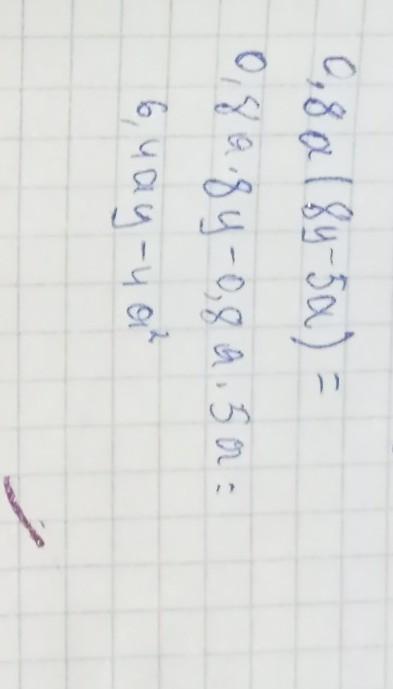 0,8a(8y-5a)=
0,8a·8y-0,8a·5a=
6,4ay-4a²